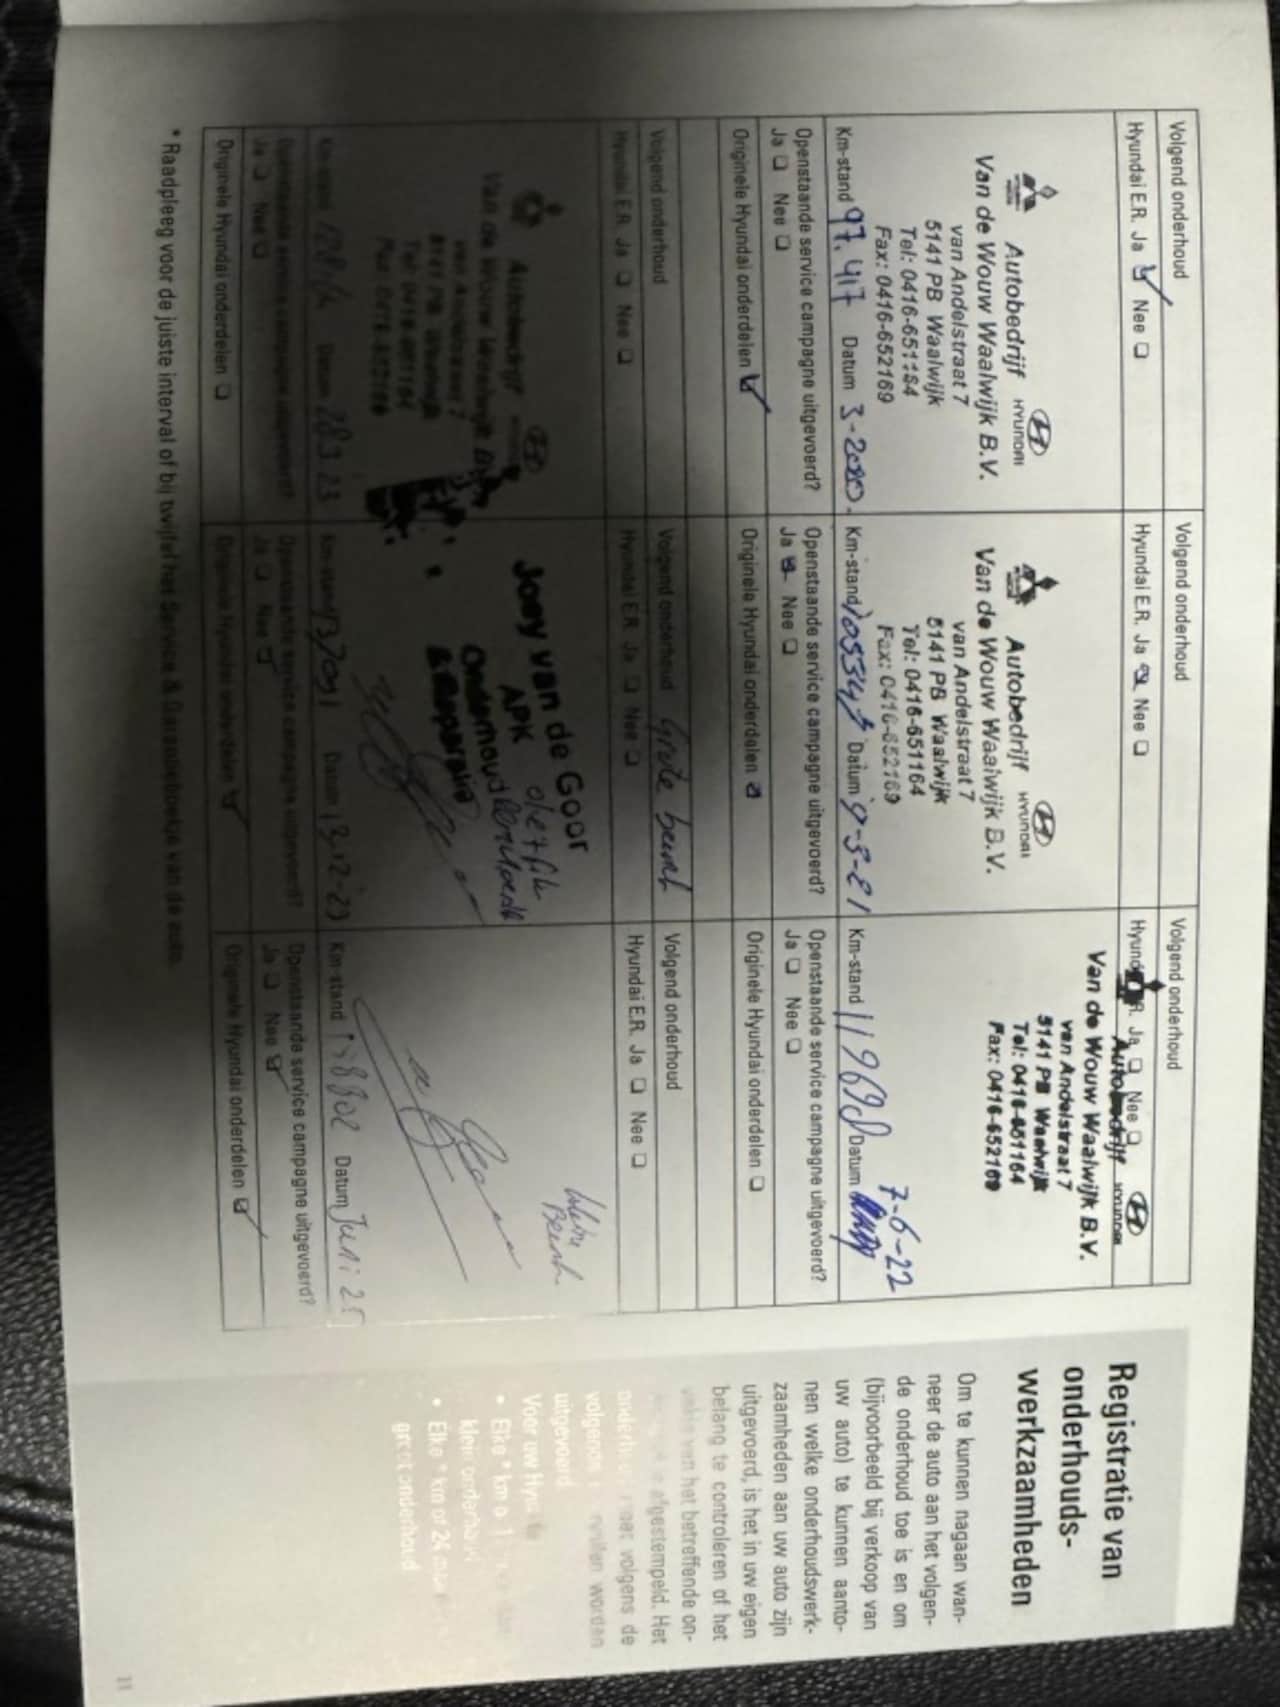 Registratie van
onderhouds-
werkzaamheden
Om te kunnen nagaan wan-
neer de auto aan het volgen-
de onderhoud toe is en om
(bijvoorbeeld bij verkoop van
uw auto) te kunnen aanto-
nen welke onderhoudswerk-
zaamheden aan uw auto zijn
uitgevoerd, is het in uw eigen
belang te controleren of het
van het betreffende on-
afgestempeld. Het
volgens de
volgens worden
uitgevoerd
Voor uw
• Elke * km o
klein onderhoud
• Elke * km of 24
groot onderhoud
Volgend onderhoud
Hyundai E.R. Ja Nee
Autobedrijf HYUNDAI
Van de Wouw Waalwijk B.V.
van Andelstraat 7
5141 PB Waalwijk
Tel: 0416-651164
Fax: 0416-652169
Km-stand 97.417 Datum 3-2020
Openstaande service campagne uitgevoerd?
Ja Nee
Originele Hyundai onderdelen
Volgend onderhoud
Hyundai E.R. Ja Nee
Autobedrijf HYUNDAI
Van de Wouw Waalwijk B.V.
van Andelstraat 7
5141 PB Waalwijk
Tel: 0416-651164
Fax: 0416-652169
Km-stand Datum 9-3-21
Openstaande service campagne uitgevoerd?
Ja Nee
Originele Hyundai onderdelen
Volgend onderhoud
Ja Nee
Autobedrijf HYUNDAI
Van de Wouw Waalwijk B.V.
van Andelstraat 7
5141 PB Waalwijk
Tel: 0416-651164
Fax: 0416-652169
Km-stand Datum 7-6-22
Openstaande service campagne uitgevoerd?
Ja Nee
Originele Hyundai onderdelen
Volgend onderhoud
Hyundai E.R. Ja Nee
Autobedrijf
Van de Wouw Waalwijk B.V.
van Andelstraat 7
5141 PB Waalwijk
Tel: 0416-651164
Fax: 0416-652169
Km-stand Datum
Openstaande service campagne uitgevoerd?
Ja Nee
Originele Hyundai onderdelen
Volgend onderhoud Grote beurt
Hyundai E.R. Ja Nee
Joey van de Goor
APK
Onderhoud
& Reparatie
Km-stand Datum 13-12-23
Openstaande service campagne uitgevoerd?
Ja Nee
Originele Hyundai onderdelen
Volgend onderhoud
Hyundai E.R. Ja Nee
Beurt
Km-stand Datum Juni 25
Openstaande service campagne uitgevoerd?
Ja Nee
Originele Hyundai onderdelen
* Raadpleeg voor de juiste interval of bij twijfel het Service & Garantieboekje van de auto.
11